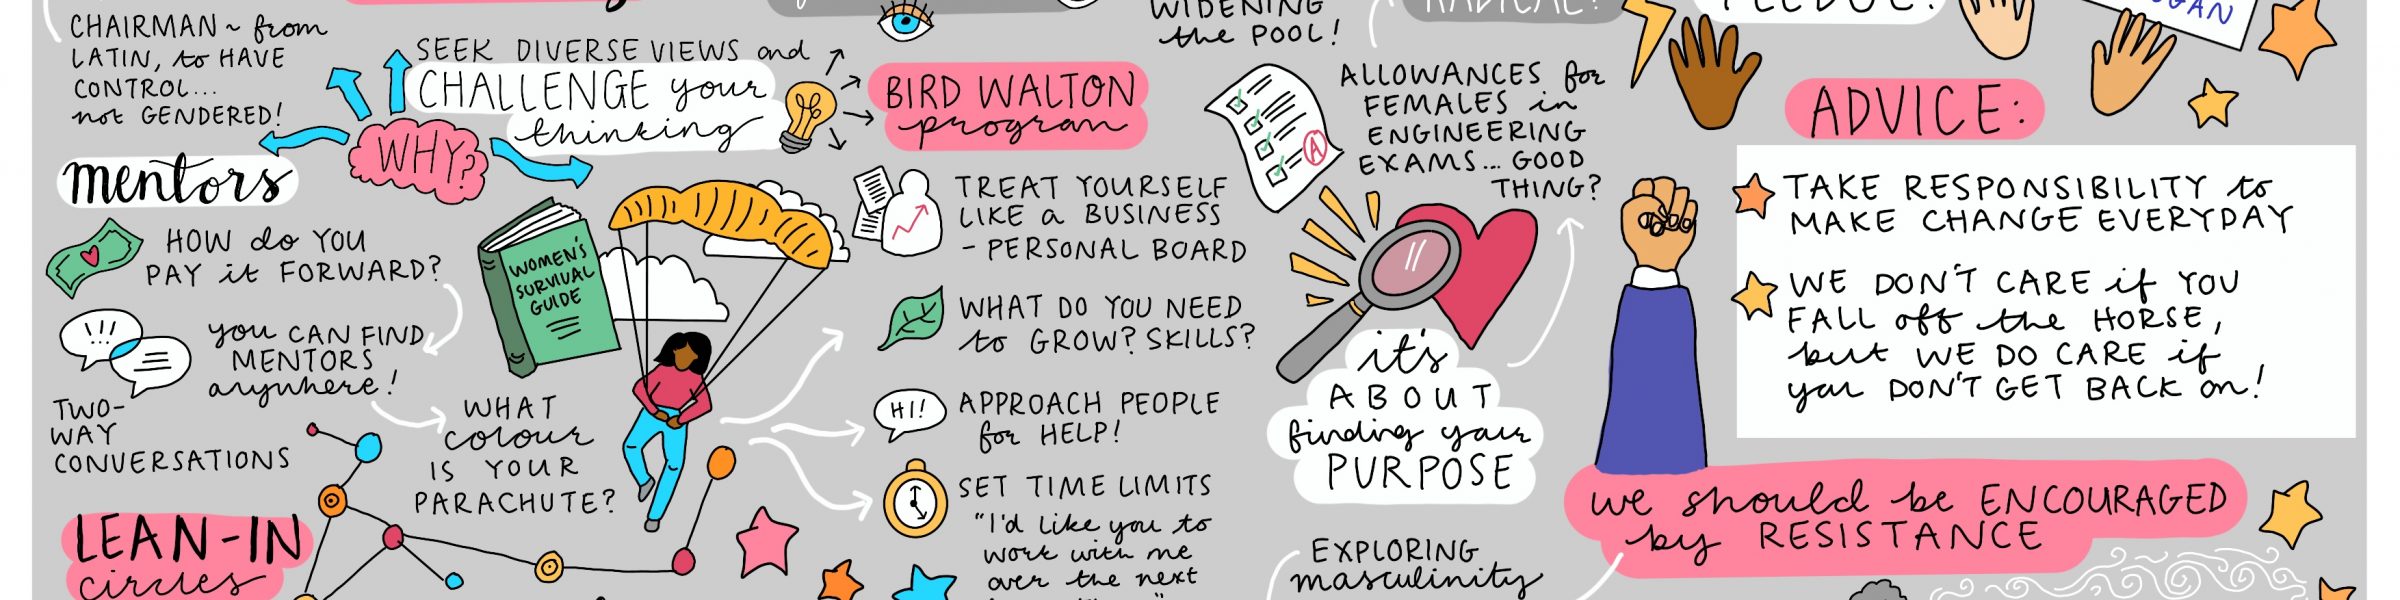 CHAIRMAN ~ from
LATIN, to HAVE
CONTROL...
not GENDERED!
SEEK DIVERSE VIEWS and
CHALLENGE your
thinking
WHY?
mentors
HOW do YOU
PAY it FORWARD?
you CAN FIND
MENTORS
anywhere!
TWO-
WAY
CONVERSATIONS
WHAT
colour
IS YOUR
PARACHUTE?
WOMEN'S
SURVIVAL
GUIDE
LEAN-IN
circles
BIRD WALTON
program
TREAT YOURSELF
LIKE a BUSINESS
- PERSONAL BOARD
WHAT DO YOU NEED
to GROW? SKILLS?
HI!
APPROACH PEOPLE
for HELP!
SET TIME LIMITS
"I'd like you to
work with me
over the next
WIDENING
the POOL!
RADICAL?
A
ALLOWANCES for
FEMALES in
ENGINEERING
EXAMS... GOOD
THING?
it's
ABOUT
finding your
PURPOSE
EXPLORING
masculinity
PLEDGE!
ADVICE:
TAKE RESPONSIBILITY to
MAKE CHANGE EVERYDAY
WE DON'T CARE if YOU
FALL off the HORSE,
but WE DO CARE if
you DON'T GET BACK on!
we should be ENCOURAGED
by RESISTANCE